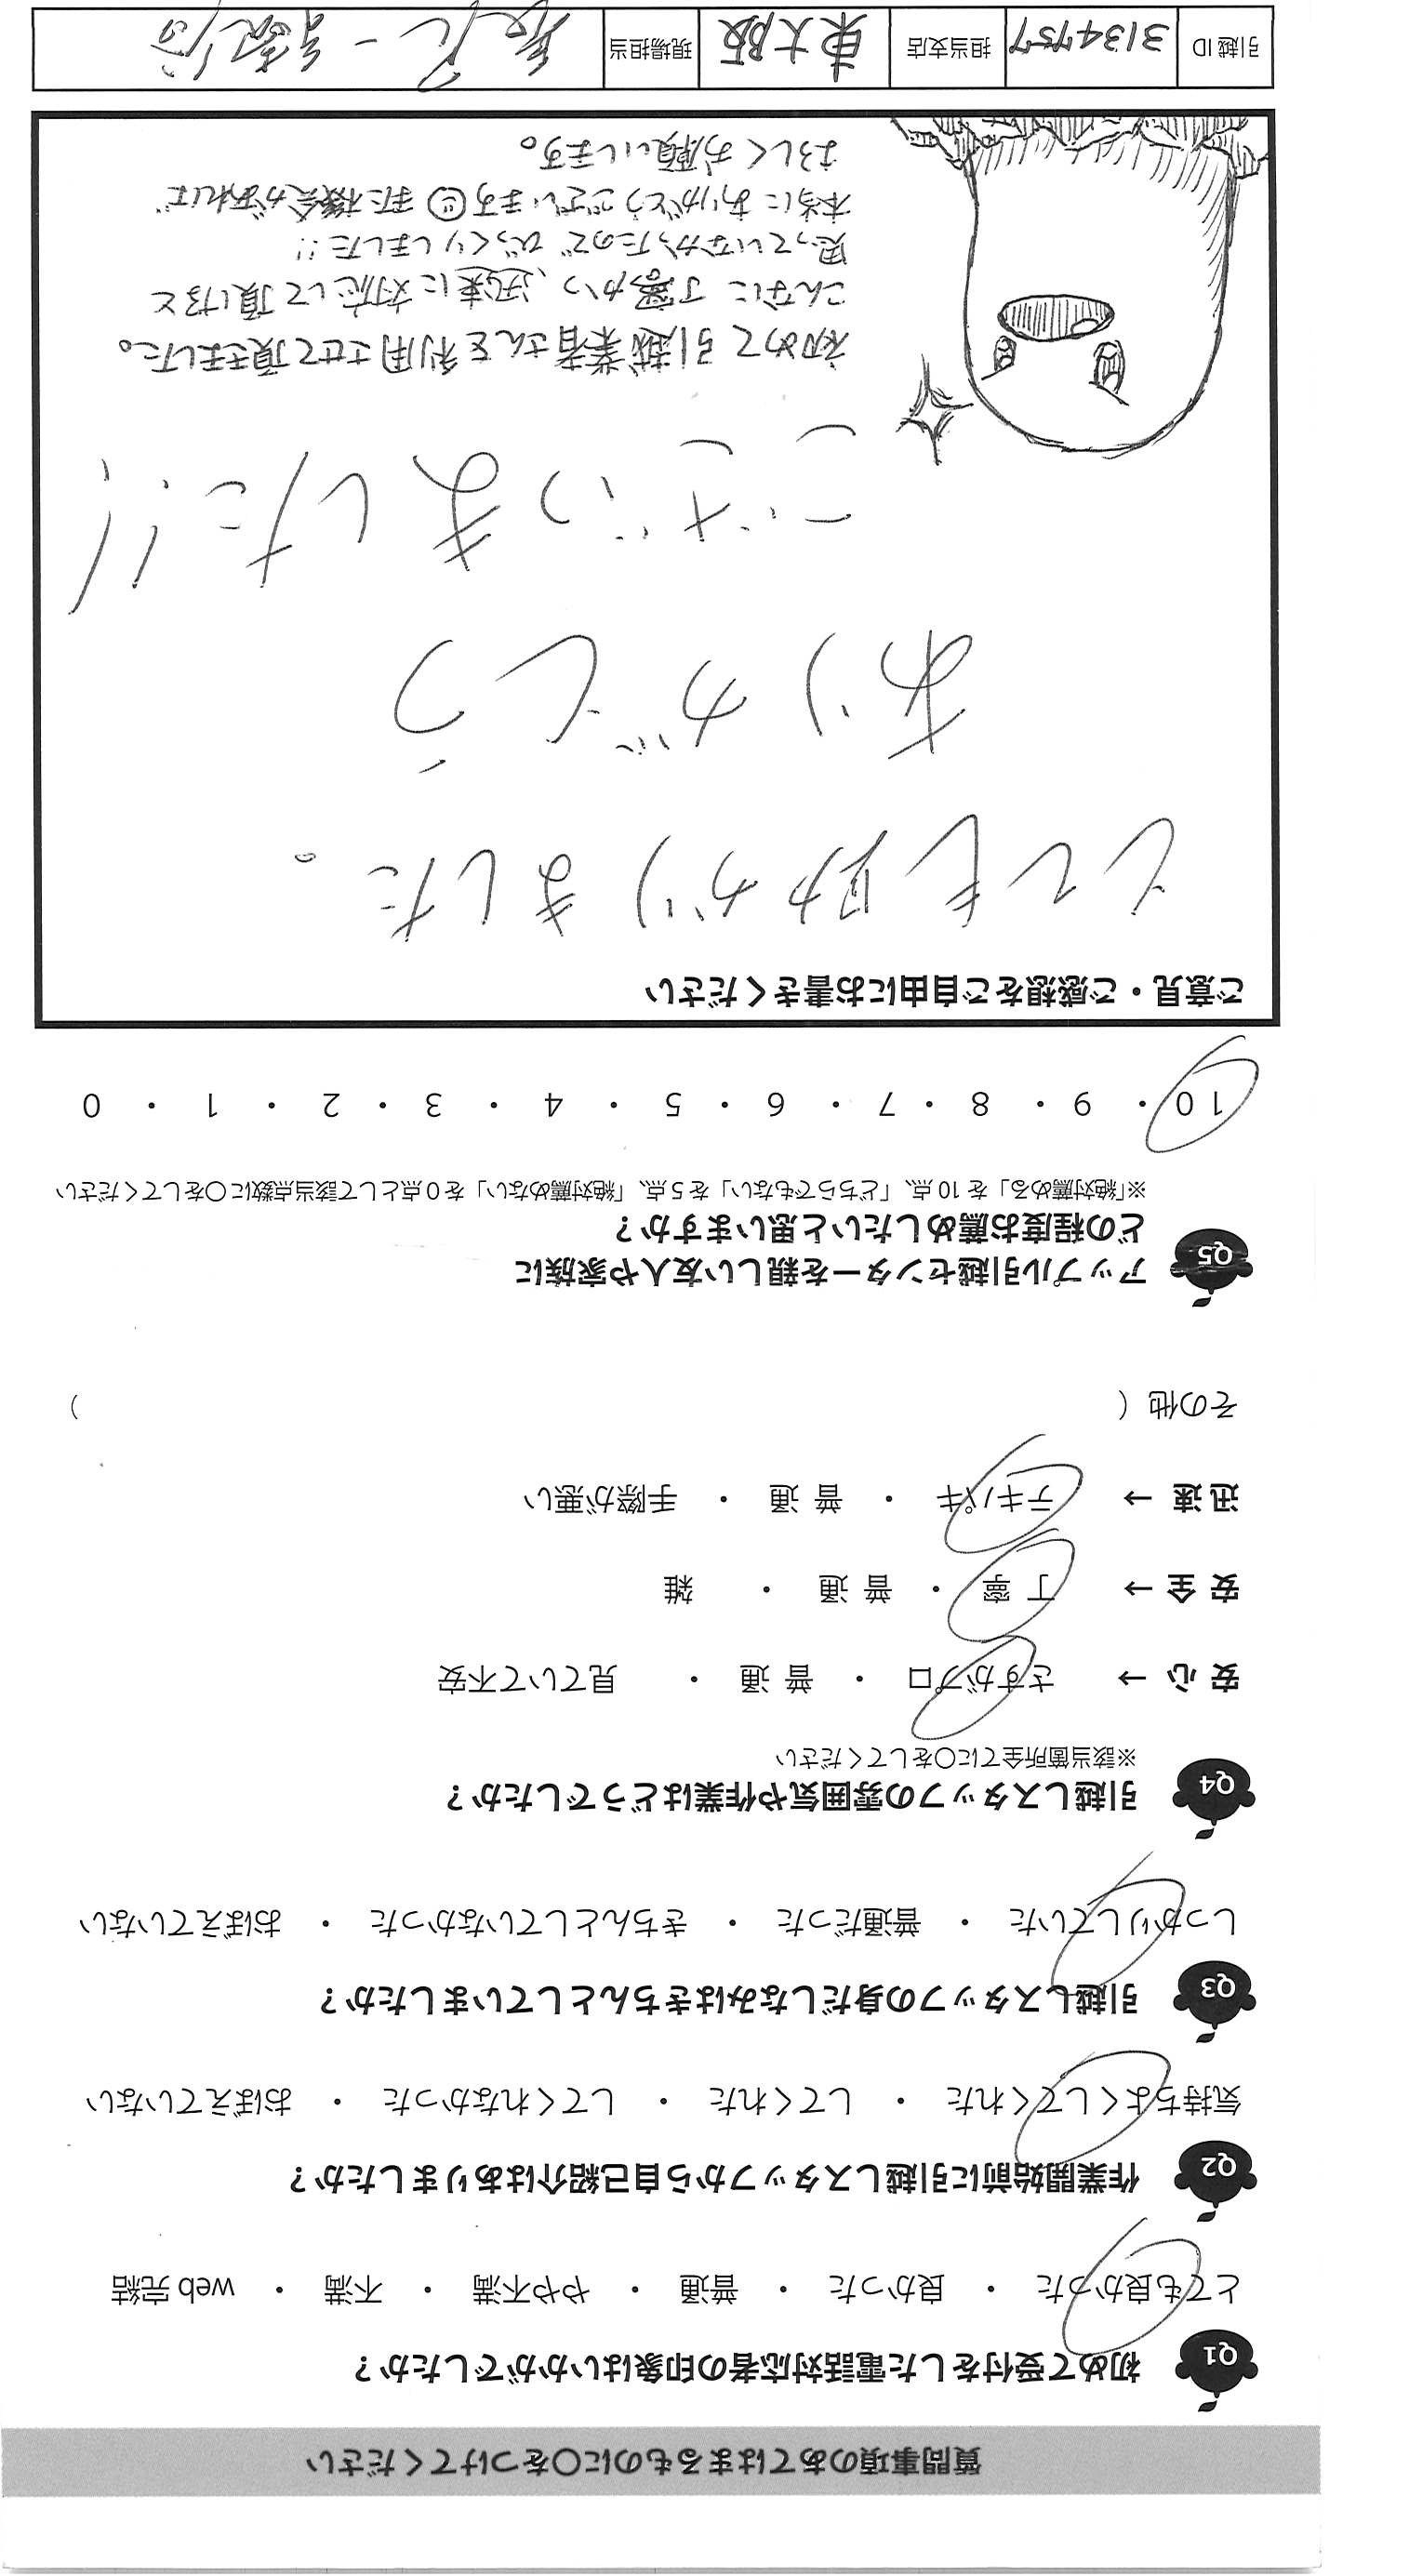 質問事項のあてはまるものに○をつけてください
Q1 初めて受付をした電話対応者の印象はいかがでしたか？
とても良かった ・ 良かった ・ 普通 ・ やや不満 ・ 不満 ・ web 完結
Q2 作業開始前に引越しスタッフから自己紹介はありましたか？
気持ちよくしてくれた ・ してくれた ・ してくれなかった ・ おぼえていない
Q3 引越しスタッフの身だしなみはきちんとしていましたか？
しっかりしていた ・ 普通だった ・ きちんとしていなかった ・ おぼえていない
Q4 引越しスタッフの雰囲気や作業はどうでしたか？
※該当箇所全てに○をしてください
安 心 → さすがプロ ・ 普 通 ・ 見ていて不安
安 全 → 丁 寧 ・ 普 通 ・ 雑
迅 速 → テキパキ ・ 普 通 ・ 手際が悪い
その他 ( )
Q5 アップル引越センターを親しい友人や家族に
どの程度お薦めしたいと思いますか？
※「絶対薦める」を 10 点、「どちらでもない」を 5 点、「絶対薦めない」を 0 点として該当点数に○をしてください
10 ・ 9 ・ 8 ・ 7 ・ 6 ・ 5 ・ 4 ・ 3 ・ 2 ・ 1 ・ 0
ご意見・ご感想をご自由にお書きください
とても助かりました。
ありがとう
ございました!!
初めて引越業者さんを利用させて頂きました。
こんなに丁寧かつ、迅速に対応して頂けると
思っていなかったのでびっくりしました!!
本当にありがとうございます☺また機会があれば
よろしくお願いします。
引越 ID 3134757 担当支店 東大阪 現場担当